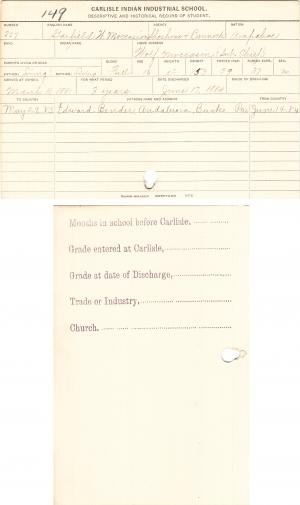 149 CARLISLE INDIAN INDUSTRIAL SCHOOL.
DESCRIPTIVE AND HISTORICAL RECORD OF STUDENT.
NUMBER ENGLISH NAME AGENCY NATION
Garfield W Moccasin Arapahoe
BAND INDIAN NAME HOME ADDRESS
Wolf Moccasin (Sub. Chief)
PARENTS LIVING OR DEAD BLOOD AGE HEIGHT WEIGHT FORCED INSP. FORCED EXPR. SEX
FATHER Living MOTHER Living Full 16 39 37 m
ARRIVED AT SCHOOL FOR WHAT PERIOD DATE DISCHARGED
March 11, 1881 3 years June 17, 1884
TO COUNTRY PATRONS NAME AND ADDRESS FROM COUNTRY
May 22 83 Edward Bender Andalusia Bucks Pa June 14-84
Months in school before Carlisle,
Grade entered at Carlisle,
Grade at date of Discharge,
Trade or Industry,
Church.